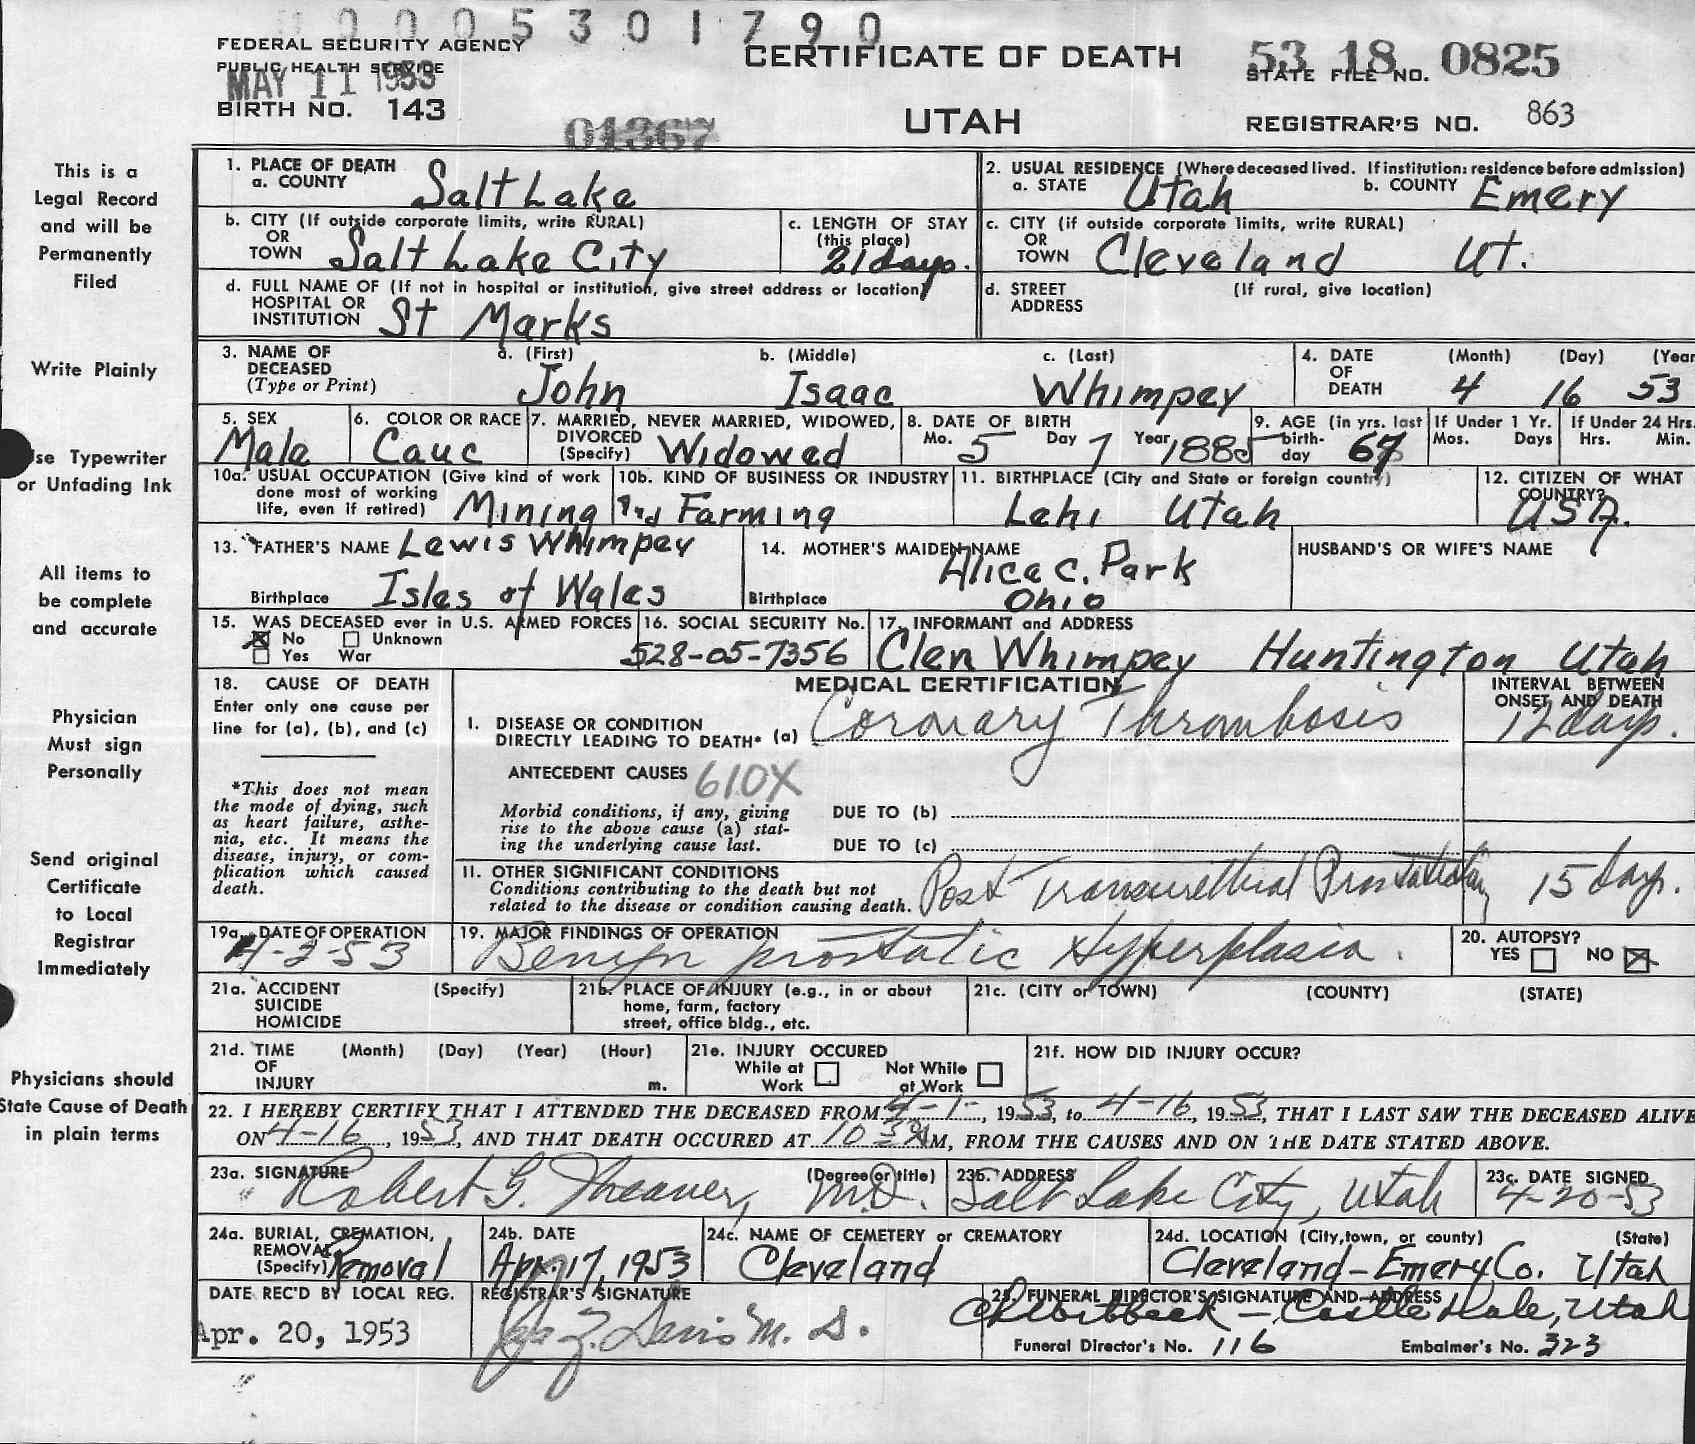 0 0 0 0 5 3 0 1 7 9 0
FEDERAL SECURITY AGENCY
PUBLIC HEALTH SERVICE
MAY 11 1953
BIRTH NO. 143
01367
CERTIFICATE OF DEATH
UTAH
53 18 0825
STATE FILE NO.
REGISTRAR'S NO. 863
This is a
Legal Record
and will be
Permanently
Filed
Write Plainly
Use Typewriter
or Unfading Ink
All items to
be complete
and accurate
Physician
Must sign
Personally
Send original
Certificate
to Local
Registrar
Immediately
Physicians should
State Cause of Death
in plain terms
1. PLACE OF DEATH
a. COUNTY Salt Lake
2. USUAL RESIDENCE (Where deceased lived. If institution: residence before admission)
a. STATE Utah b. COUNTY Emery
b. CITY (If outside corporate limits, write RURAL)
OR
TOWN Salt Lake City
c. LENGTH OF STAY
(this place)
21 days.
c. CITY (if outside corporate limits, write RURAL)
OR
TOWN Cleveland Ut.
d. FULL NAME OF (If not in hospital or institution, give street address or location)
HOSPITAL OR
INSTITUTION St Marks
d. STREET (If rural, give location)
ADDRESS
3. NAME OF a. (First) b. (Middle) c. (Last)
DECEASED
(Type or Print) John Isaac Whimpey
4. DATE (Month) (Day) (Year
OF
DEATH 4 16 53
5. SEX
Male
6. COLOR OR RACE
Cauc
7. MARRIED, NEVER MARRIED, WIDOWED,
DIVORCED
(Specify) Widowed
8. DATE OF BIRTH
Mo. 5 Day 7 Year 1885
9. AGE (in yrs. last
birth-
day 67
If Under 1 Yr.
Mos. Days
If Under 24 Hrs.
Hrs. Min.
10a. USUAL OCCUPATION (Give kind of work
done most of working
life, even if retired) Mining
10b. KIND OF BUSINESS OR INDUSTRY
and Farming
11. BIRTHPLACE (City and State or foreign country)
Lehi Utah
12. CITIZEN OF WHAT
COUNTRY?
USA.
13. FATHER'S NAME Lewis Whimpey
Birthplace Isles of Wales
14. MOTHER'S MAIDEN NAME
Alice C. Park
Birthplace Ohio
HUSBAND'S OR WIFE'S NAME
15. WAS DECEASED ever in U.S. ARMED FORCES
No Unknown
Yes War
16. SOCIAL SECURITY No.
528-05-7356
17. INFORMANT and ADDRESS
Clen Whimpey Huntington Utah
18. CAUSE OF DEATH
Enter only one cause per
line for (a), (b), and (c)
*This does not mean
the mode of dying, such
as heart failure, asthe-
nia, etc. It means the
disease, injury, or com-
plication which caused
death.
MEDICAL CERTIFICATION
INTERVAL BETWEEN
ONSET AND DEATH
I. DISEASE OR CONDITION
DIRECTLY LEADING TO DEATH* (a) Coronary Thrombosis 12 days.
ANTECEDENT CAUSES 610X
Morbid conditions, if any, giving
rise to the above cause (a) stat-
ing the underlying cause last.
DUE TO (b)
DUE TO (c)
II. OTHER SIGNIFICANT CONDITIONS
Conditions contributing to the death but not
related to the disease or condition causing death. Post Transurethral 15 days.
19a. DATE OF OPERATION
4-2-53
19. MAJOR FINDINGS OF OPERATION
Benign prostatic Hyperplasia.
20. AUTOPSY?
YES NO
21a. ACCIDENT (Specify)
SUICIDE
HOMICIDE
21b. PLACE OF INJURY (e.g., in or about
home, farm, factory
street, office bldg., etc.
21c. (CITY or TOWN) (COUNTY) (STATE)
21d. TIME (Month) (Day) (Year) (Hour)
OF
INJURY m.
21e. INJURY OCCURED
While at
Work
Not While
at Work
21f. HOW DID INJURY OCCUR?
22. I HEREBY CERTIFY THAT I ATTENDED THE DECEASED FROM 4-1-, 1953, to 4-16, 1953, THAT I LAST SAW THE DECEASED ALIVE
ON 4-16, 1953, AND THAT DEATH OCCURED AT 10 30 AM, FROM THE CAUSES AND ON THE DATE STATED ABOVE.
23a. SIGNATURE (Degree or title)
Robert G. M.D.
23b. ADDRESS
Salt Lake City, Utah
23c. DATE SIGNED
4-20-53
24a. BURIAL, CREMATION,
REMOVAL
(Specify) Removal
24b. DATE
Apr. 17, 1953
24c. NAME OF CEMETERY or CREMATORY
Cleveland
24d. LOCATION (City, town, or county) (State)
Cleveland-Emery Co. Utah
DATE REC'D BY LOCAL REG.
Apr. 20, 1953
REGISTRAR'S SIGNATURE
25. FUNERAL DIRECTOR'S SIGNATURE AND ADDRESS
Castle Dale, Utah
Funeral Director's No. 116 Embalmer's No. 323